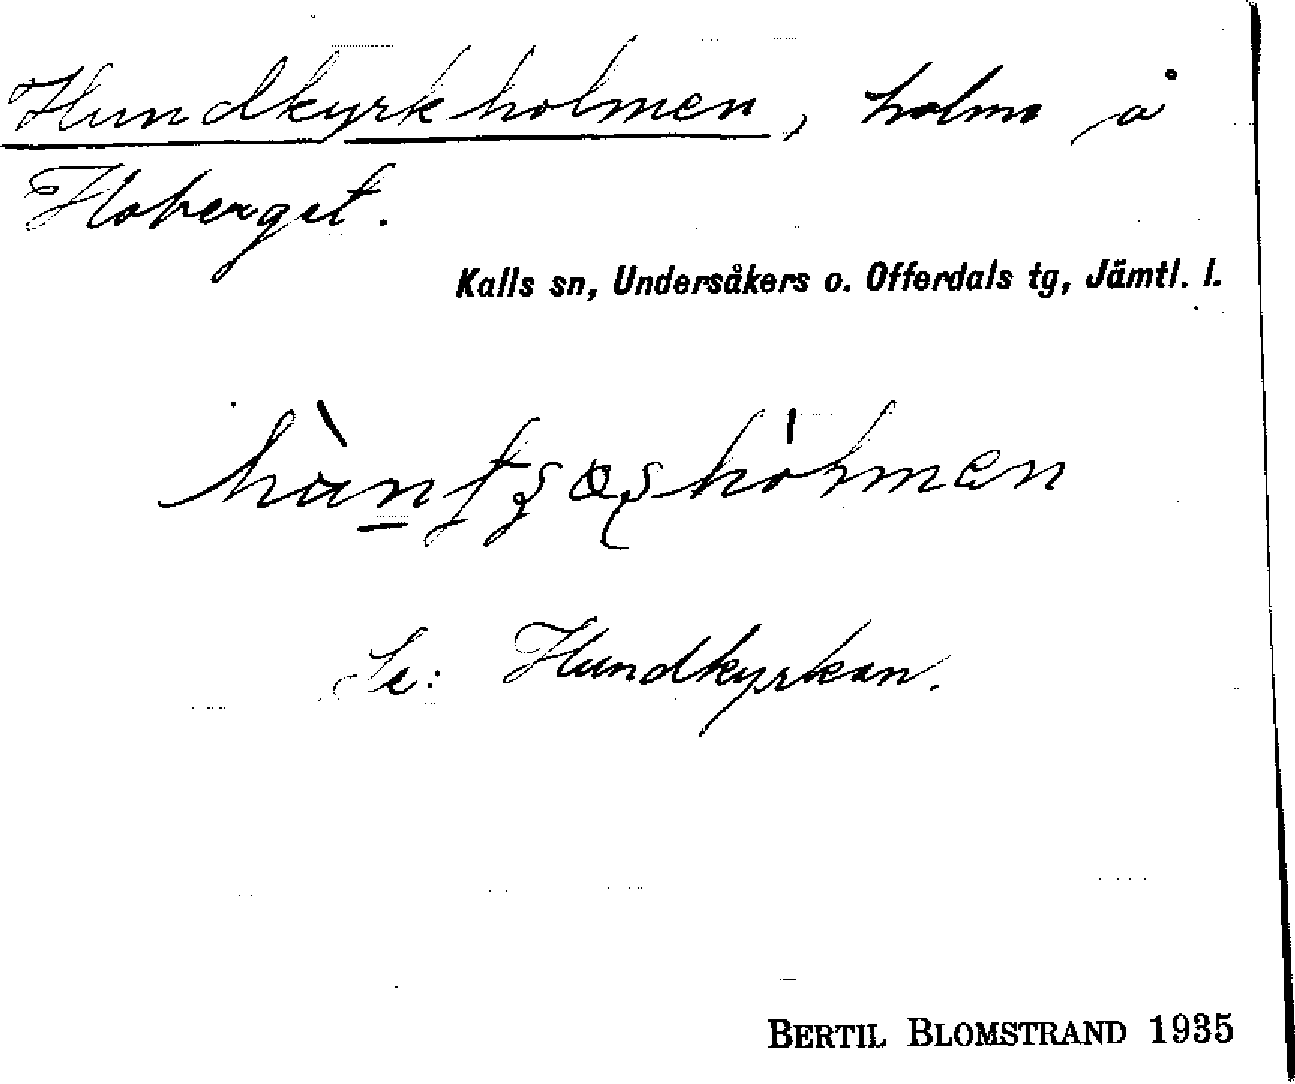 Hundkyrkholmen, holme å
Hoberget.
Kalls sn, Undersåkers o. Offerdals tg, Jämtl. l.
Se: Hundkyrkan.
BERTIL BLOMSTRAND 1935